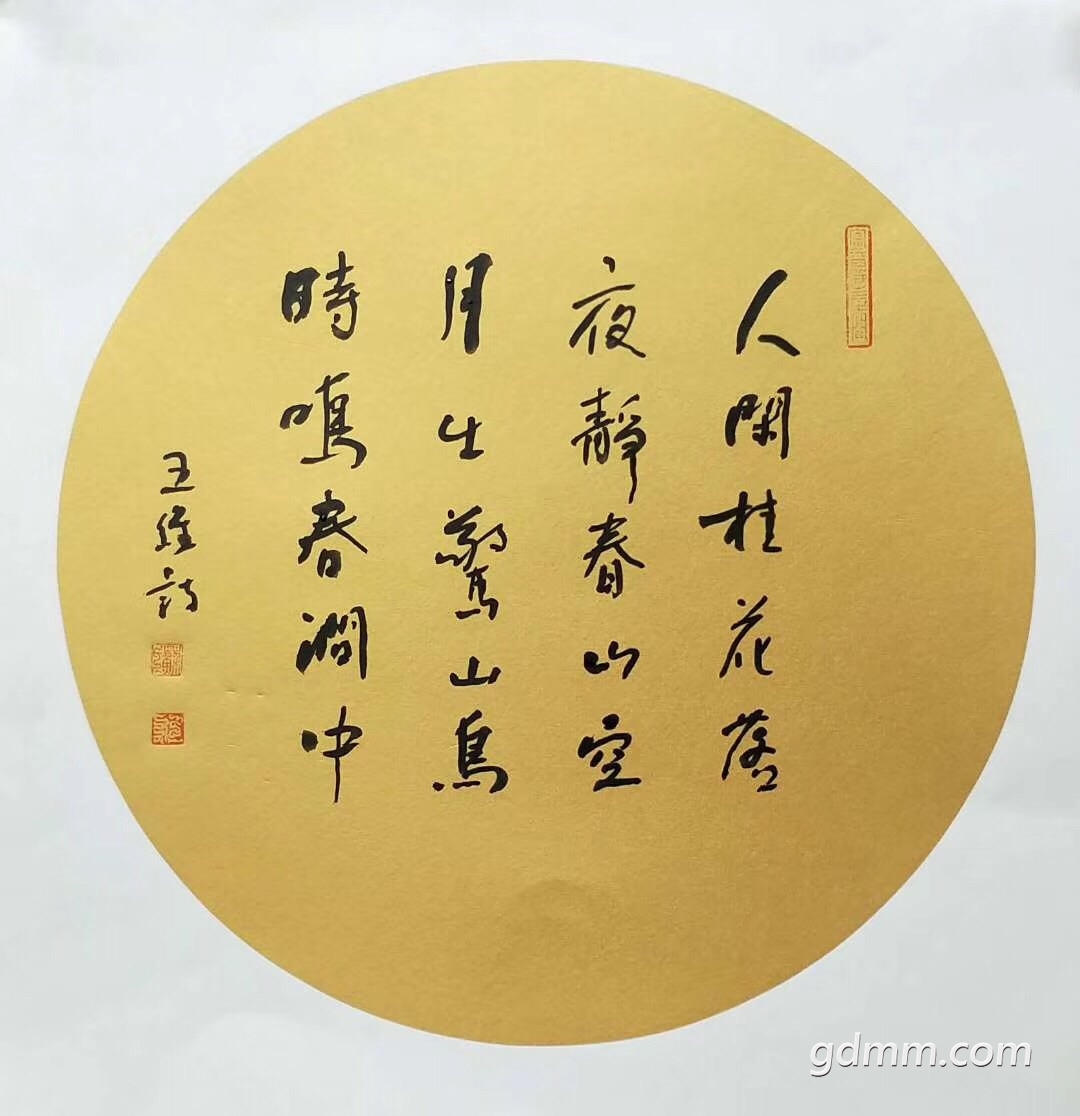 人閑桂花落
夜靜春山空
月出驚山鳥
時鳴春澗中
王維詩
gdmm.com